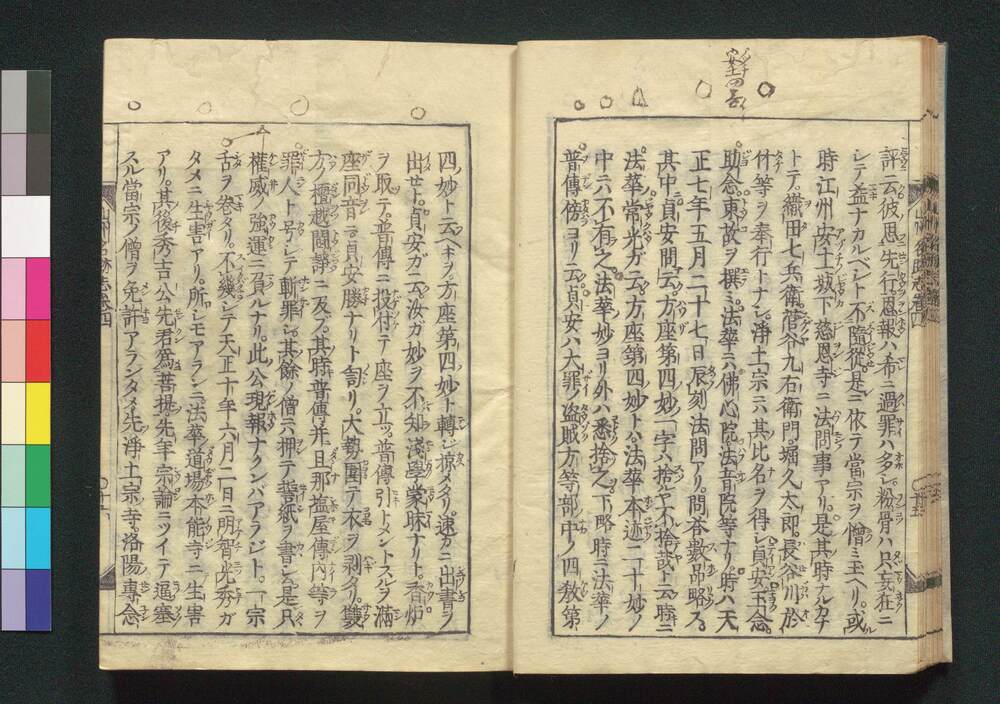 評云彼思先行恩報ハ希ニ過罪ハ多シ粉骨ハ只妄在ニ
シテ益ナカルベシト不隨從是ニ依テ當宗ヲ憎ミ玉ヘリ或
時江州安土城下慈恩寺ニ法問事アリ是其時アルカナ
トテ織田七兵衛菅谷九右衛門堀久太郎長谷川於
付等ヲ奉行トナシ浄土宗ニハ其比名ヲ得シ貞安
助念東故ヲ撰ミ法華ニハ佛心院法音院等ナリ時ハ天
正七年五月二十七日辰刻法問アリ問答数品略ス
其中貞安問云方座第四妙一字ハ捨ヤ不捨哉ト云時ニ
法華常光ガ云方座第四妙トハ法華本迹二十妙ノ
中ニハ不有之法華妙ヨリ外ハ悉捨之下略時ニ法華ノ
普傳傍ヨリ云貞安ハ大罪ノ盗賊方等部中ノ四教第
四ノ妙ト云ヘキヲ方座第四妙ト轉シ掠メタリ速カニ出書ヲ
出セト貞安ガ云汝ガ妙ヲ不知淺學蒙昧ナリト香炉
ヲ取テ普傳ニ投付テ座ヲ立ツ普傳引トメントスルヲ滿
座同音ニ貞安勝ナリト訇リ大勢圍テ衣ヲ剥タリ雙
方ノ檀越闘諍ニ及フ其時普傳并旦那塩屋傳内等ヲ
罪人ト号シテ斬罪シ其餘ノ僧ニハ押テ誓紙ヲ書シム是只
權威ノ強運ニ負ルナリ此公現報ナクンバアラジト一宗
舌ヲ巻タリ不幾シテ天正十年六月二日ニ明智光秀ガ
タメニ生害アリ所シモアランニ法華道場本能寺ニ生害
アリ其後秀吉公先君為菩提先年宗論ニツイテ逼塞
スル當宗ノ僧ヲ免許アランタメ先浄土宗寺洛陽專念